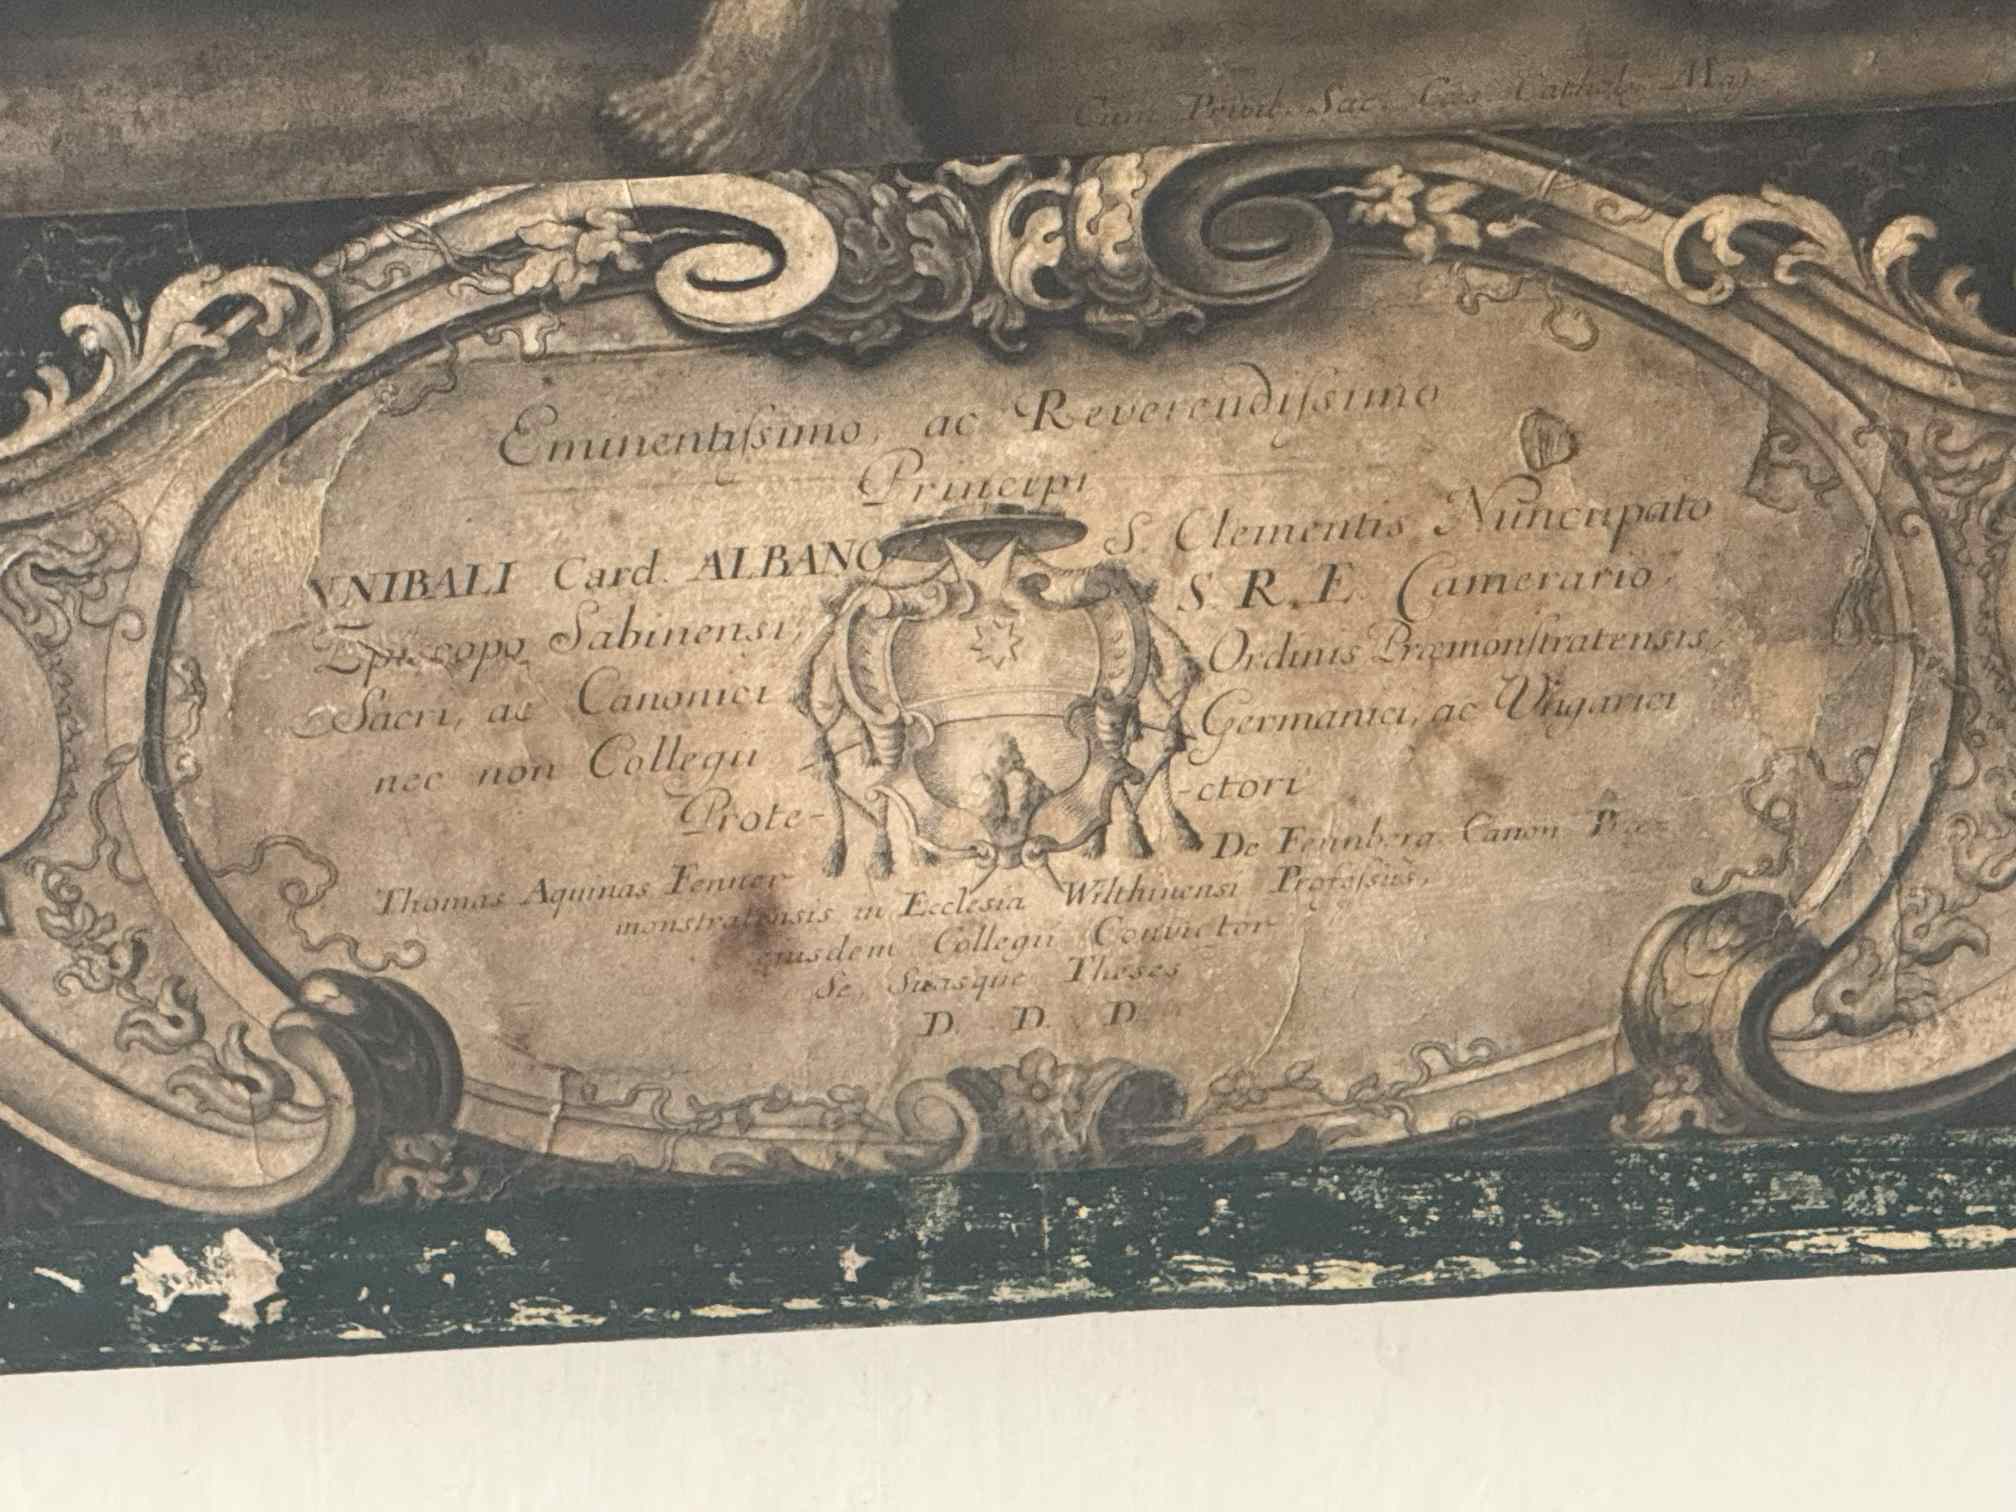 Cum Privil. Sac. Cæs. Cathol. Maj.
Eminentissimo, ac Reverendissimo
Principi
NNIBALI Card. ALBANO S. Clementis Nuncupato
Episcopo Sabinensi, S. R. E. Camerario,
Sacri, ac Canonici Ordinis Præmonstratensis,
nec non Collegii Germanici, ac Ungarici
Prote- -ctori
Thomas Aquinas Fenner De Fennberg Canon Præ-
monstratensis in Ecclesia Wilthinensi Professus,
eiusdem Collegii Convictor
Se, Suasque Theses
D. D. D.